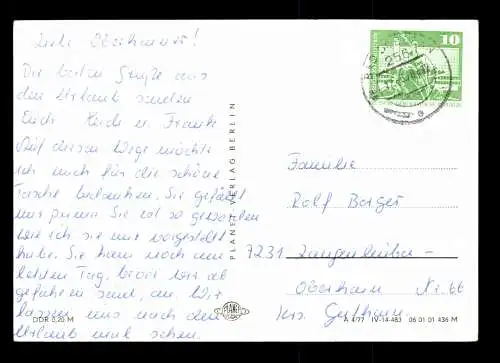 Liebe Oberhainer!
Die besten Grüße aus
dem Urlaub senden
Euch Heidi u. Frank
Auf diesem Wege möchte
ich mich für die schöne
Tasche bedanken. Sie gefällt
mir prima. Sie ist so geworden
wie ich sie mir vorgestellt
habe. Sie kam noch am
letzten Tag, bevor wir ab
gefahren sind, an. Wir
lassen uns nach dem
Urlaub mal sehen.
DDR 0,20 M
PLANET VERLAG BERLIN
PLANET
10
256
Familie
Rolf Borges
7231 Langenleuba-
Oberhain Nr. 66
Krs. Geithain
A 4/77 IV-14-483 06 01 01 436 M